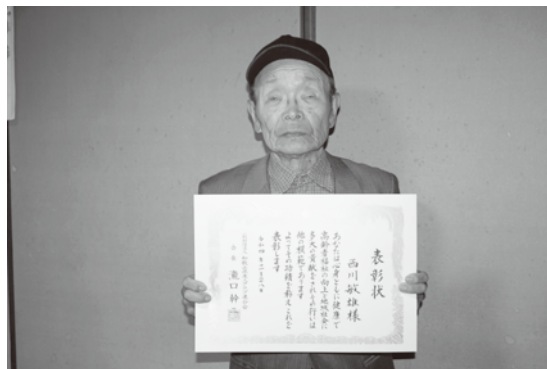 表彰状
西川敏雄様
あなたは心身ともに健康で
高齢者福祉の向上と地域社会に
多大の貢献をされその行いは
他の模範であります
よってその功績を称えこれを
表彰します
令和四年
会長 瀧口幹